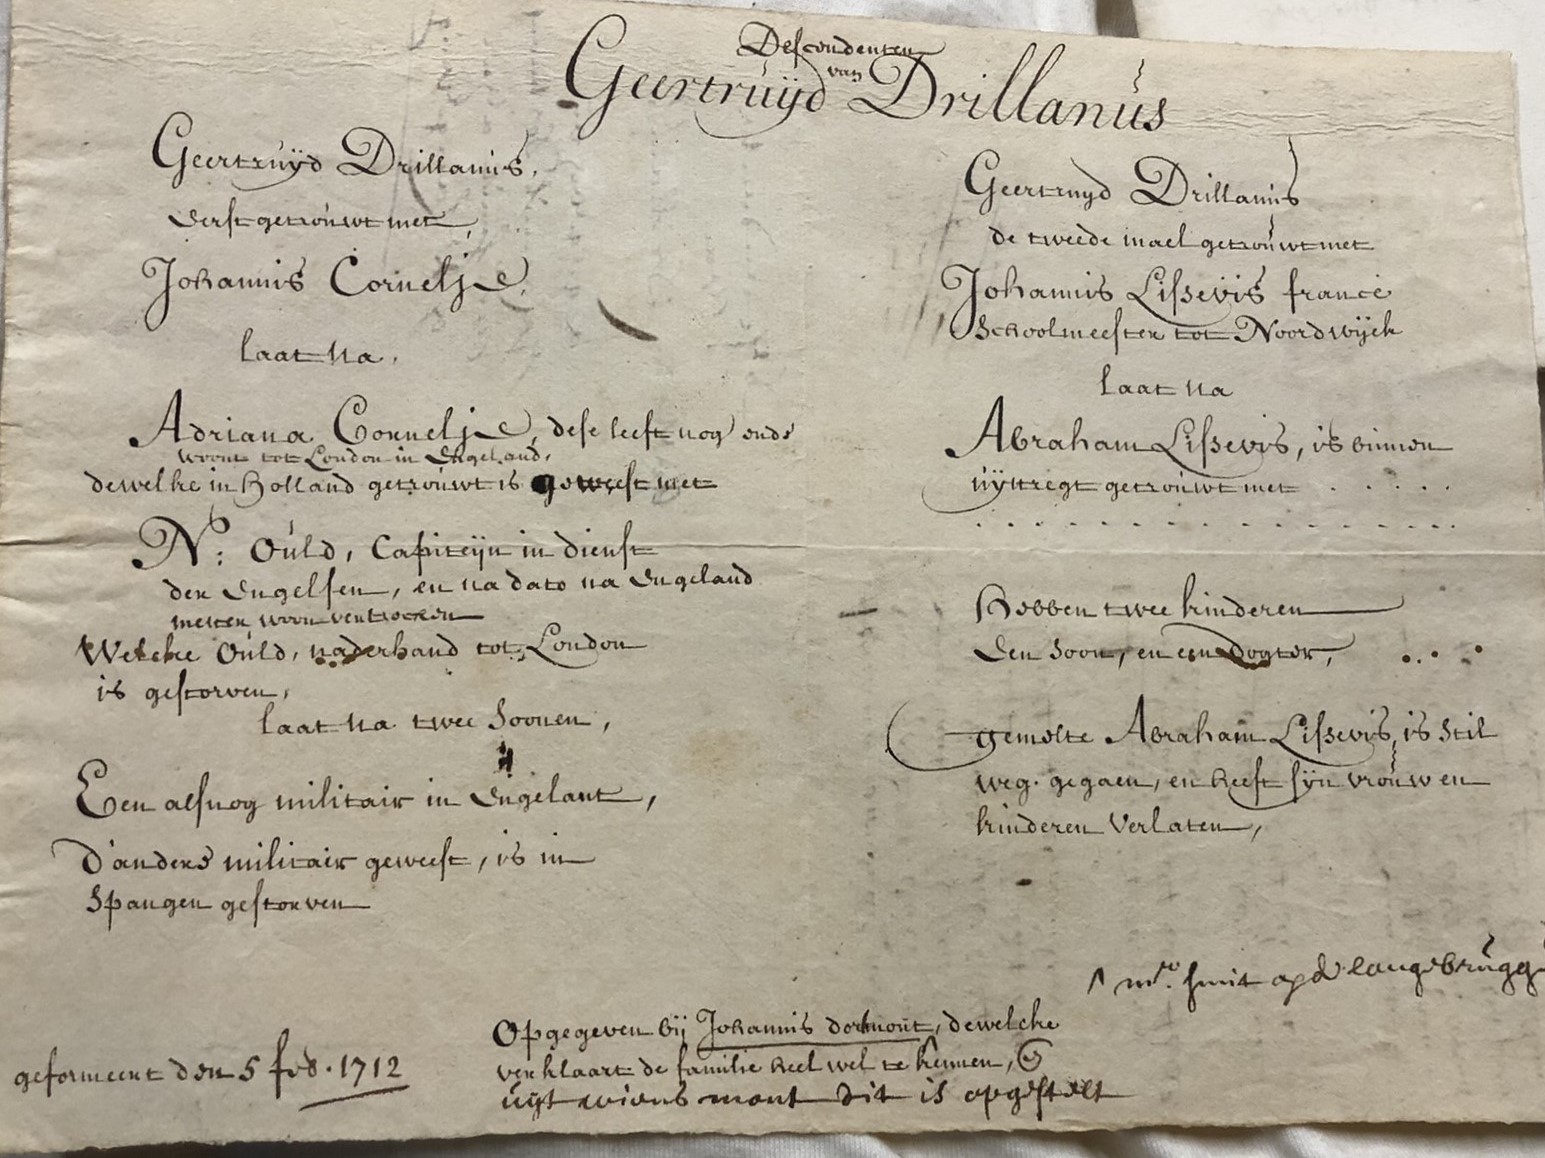 Descendenten
van
Geertruijd Drillanus
Geertruijd Drillanus,
Eerst getrouwt met,
Johannis Cornelje,
laat na,
Adriana Cornelje, dese leeft nog ende
woont tot London in Engeland,
dewelke in Holland getrouwt is geweest met
N: Ould, Capiteijn in dienst
der Engelsen, en na dato na Engeland
metter woon vertrocken
Welcke Ould, naderhand tot London
is gestorven,
laat na twee Soonen,
Een alsnog militair in Engelant,
D'andere militair geweest, is in
Spangen gestorven
Geertruyd Drillanus
de tweede mael getrouwt met
Johannis Lissevis france
Schoolmeester tot Noordwijck
laat na
Abraham Lissevis, is binnen
uijttregt getrouwt met . . . . .
. . . . . . . . . . . . . . . . .
Hebben twee kinderen
Een Soon, en een Dogter, . . . .
gemelte Abraham Lissevis, is stil
weg. gegaen, en heeft sijn vrouw en
kinderen verlaten,
^ mr. smit op de langebrugge
Opgegeven bij Johannis dormout, dewelcke
verklaart de familie heel wel te kennen, ^
uijt wiens mont dit is opgestelt
geformeert den 5 feb. 1712